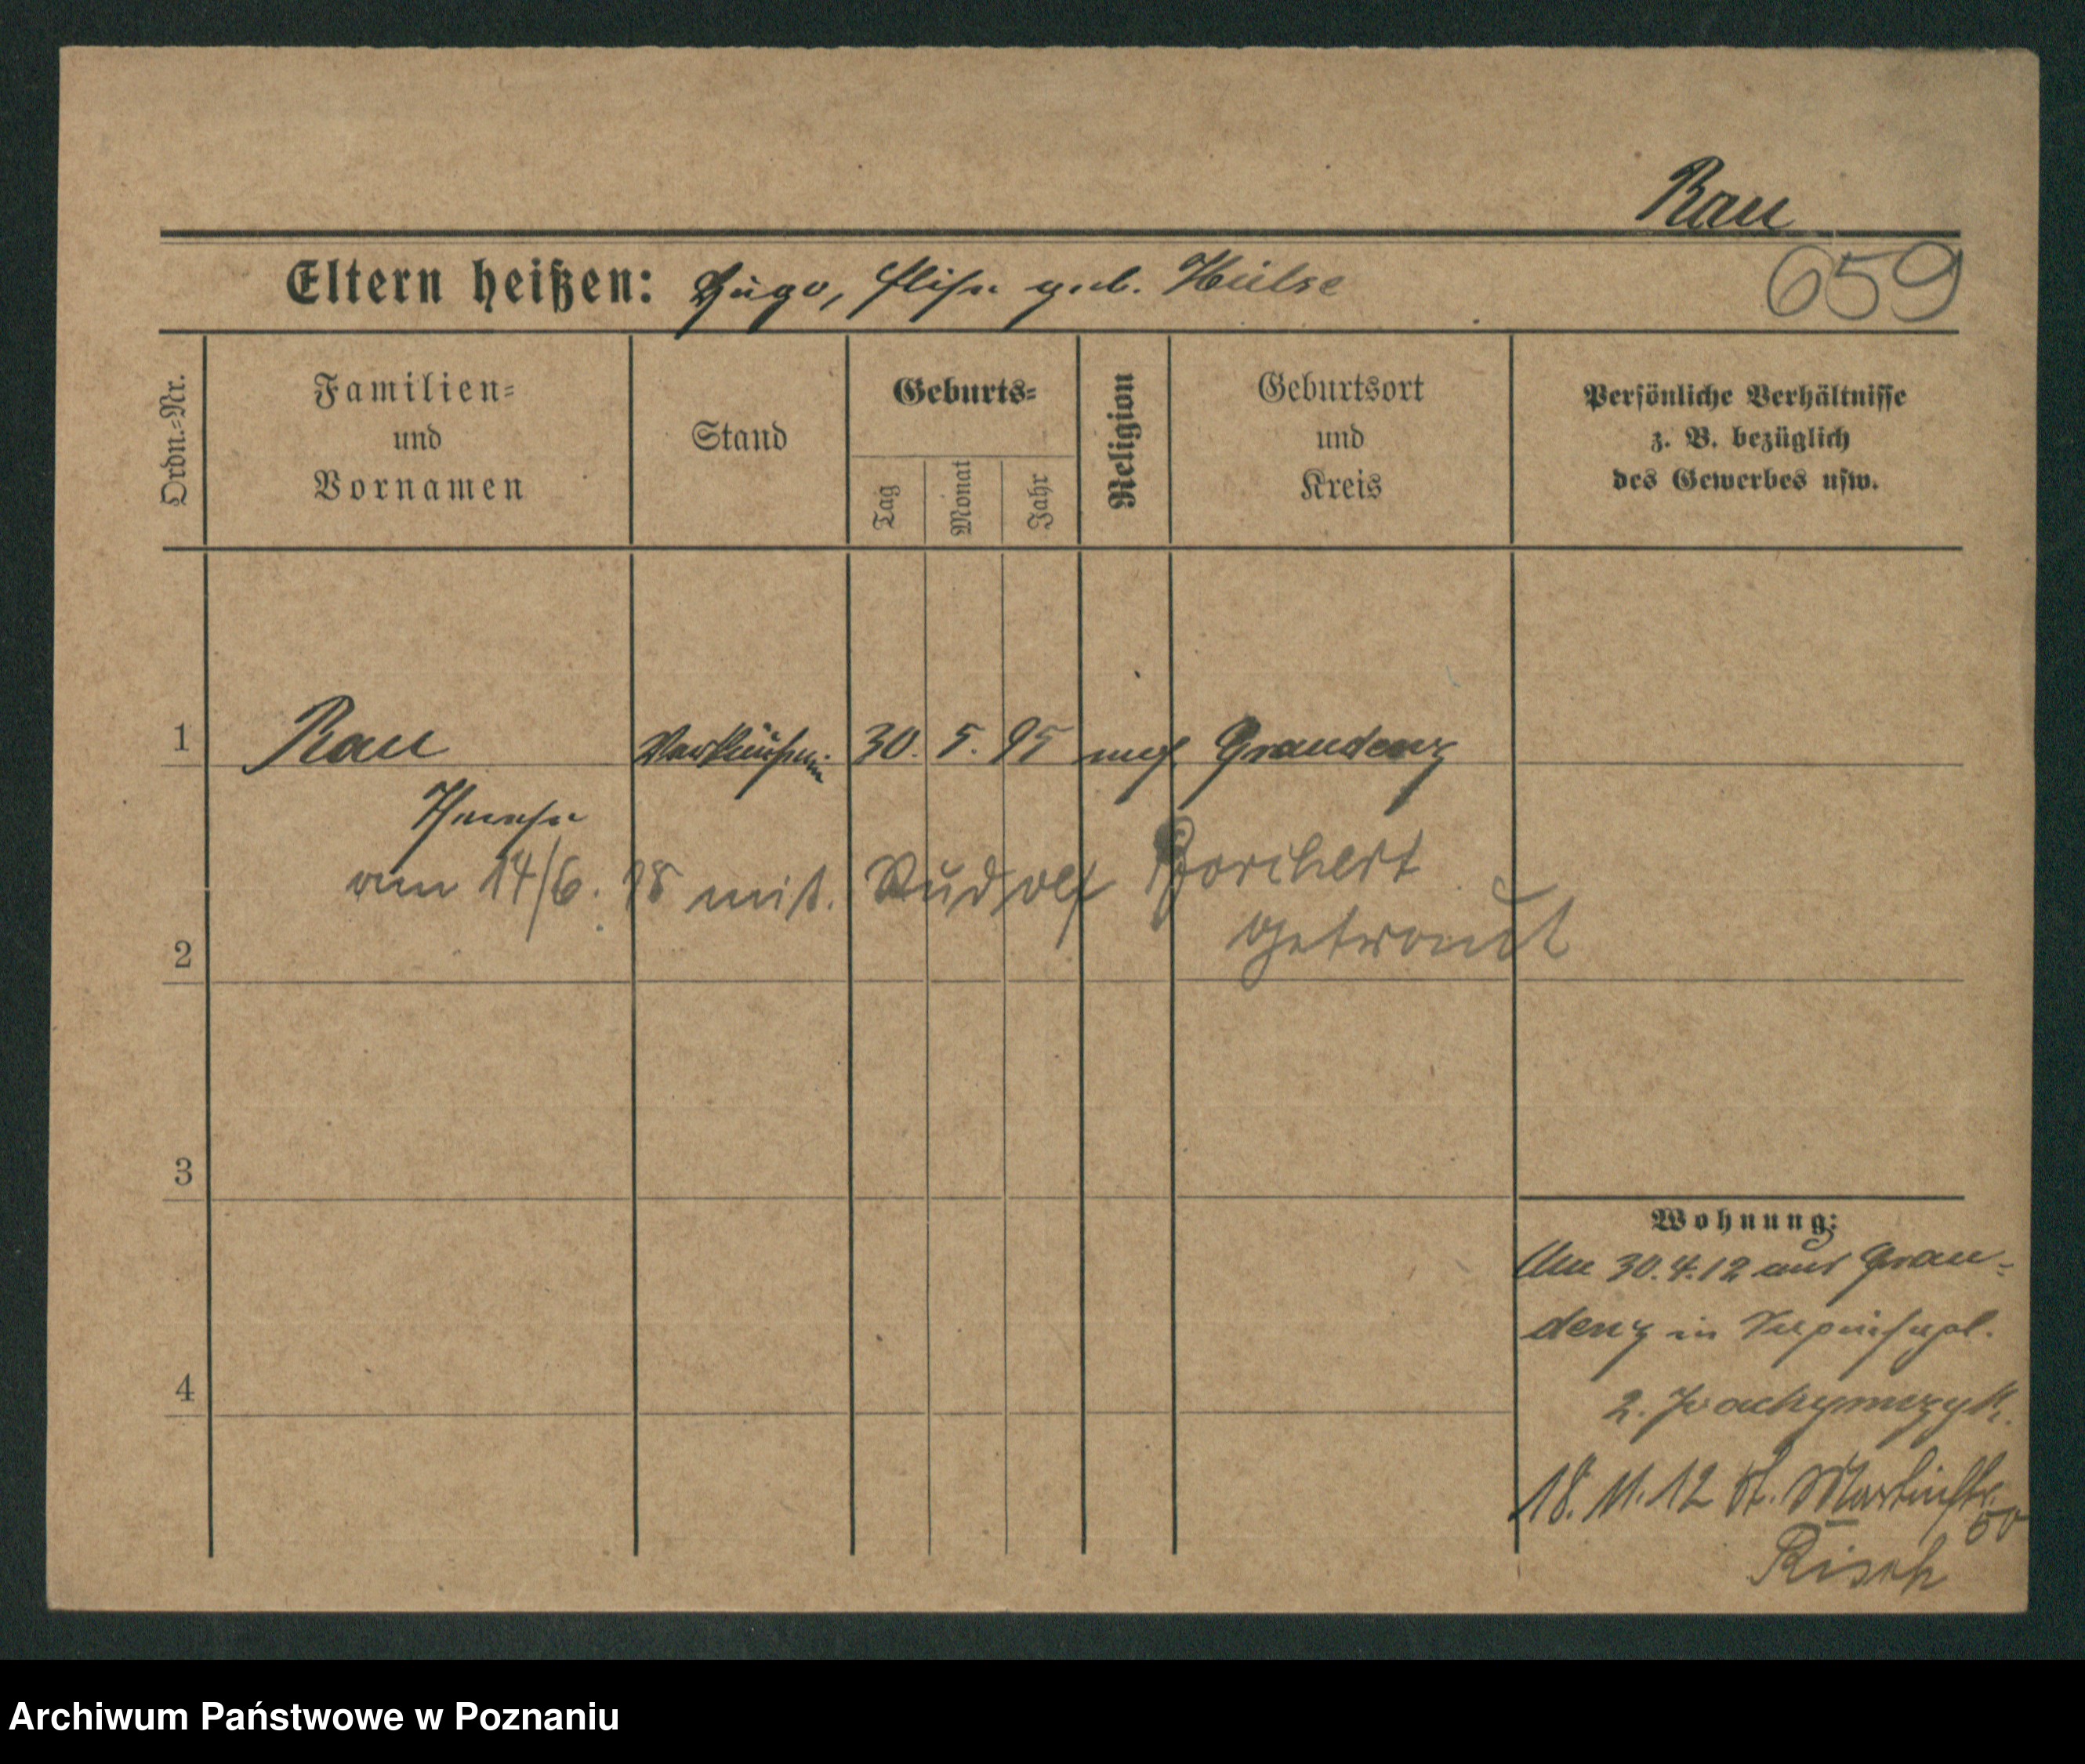 Rau
659
Eltern heißen: Hugo, Elise geb. Hülse
Ordn.-Nr.
Familien-
und
Vornamen
Stand
Geburts-
Tag
Monat
Jahr
Religion
Geburtsort
und
Kreis
Persönliche Verhältnisse
z. B. bezüglich
des Gewerbes usw.
1 Rau Verkäuferin 30. 5. 95 Graudenz
am 14/6. 18 mit. Rudolf Borchert
getraut
2
3
4
Wohnung:
Am 30.4.12 aus Grau-
denz in
2. Joachymczyk.
18. 11. 12 St. Martinstr. 50
Risch
Archiwum Państwowe w Poznaniu